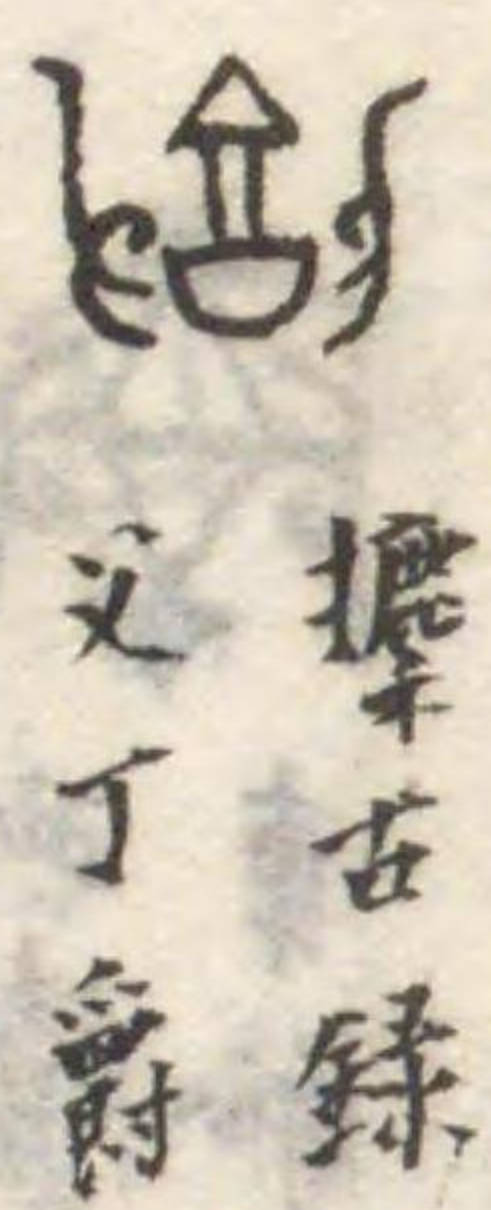 攈古錄
父丁爵